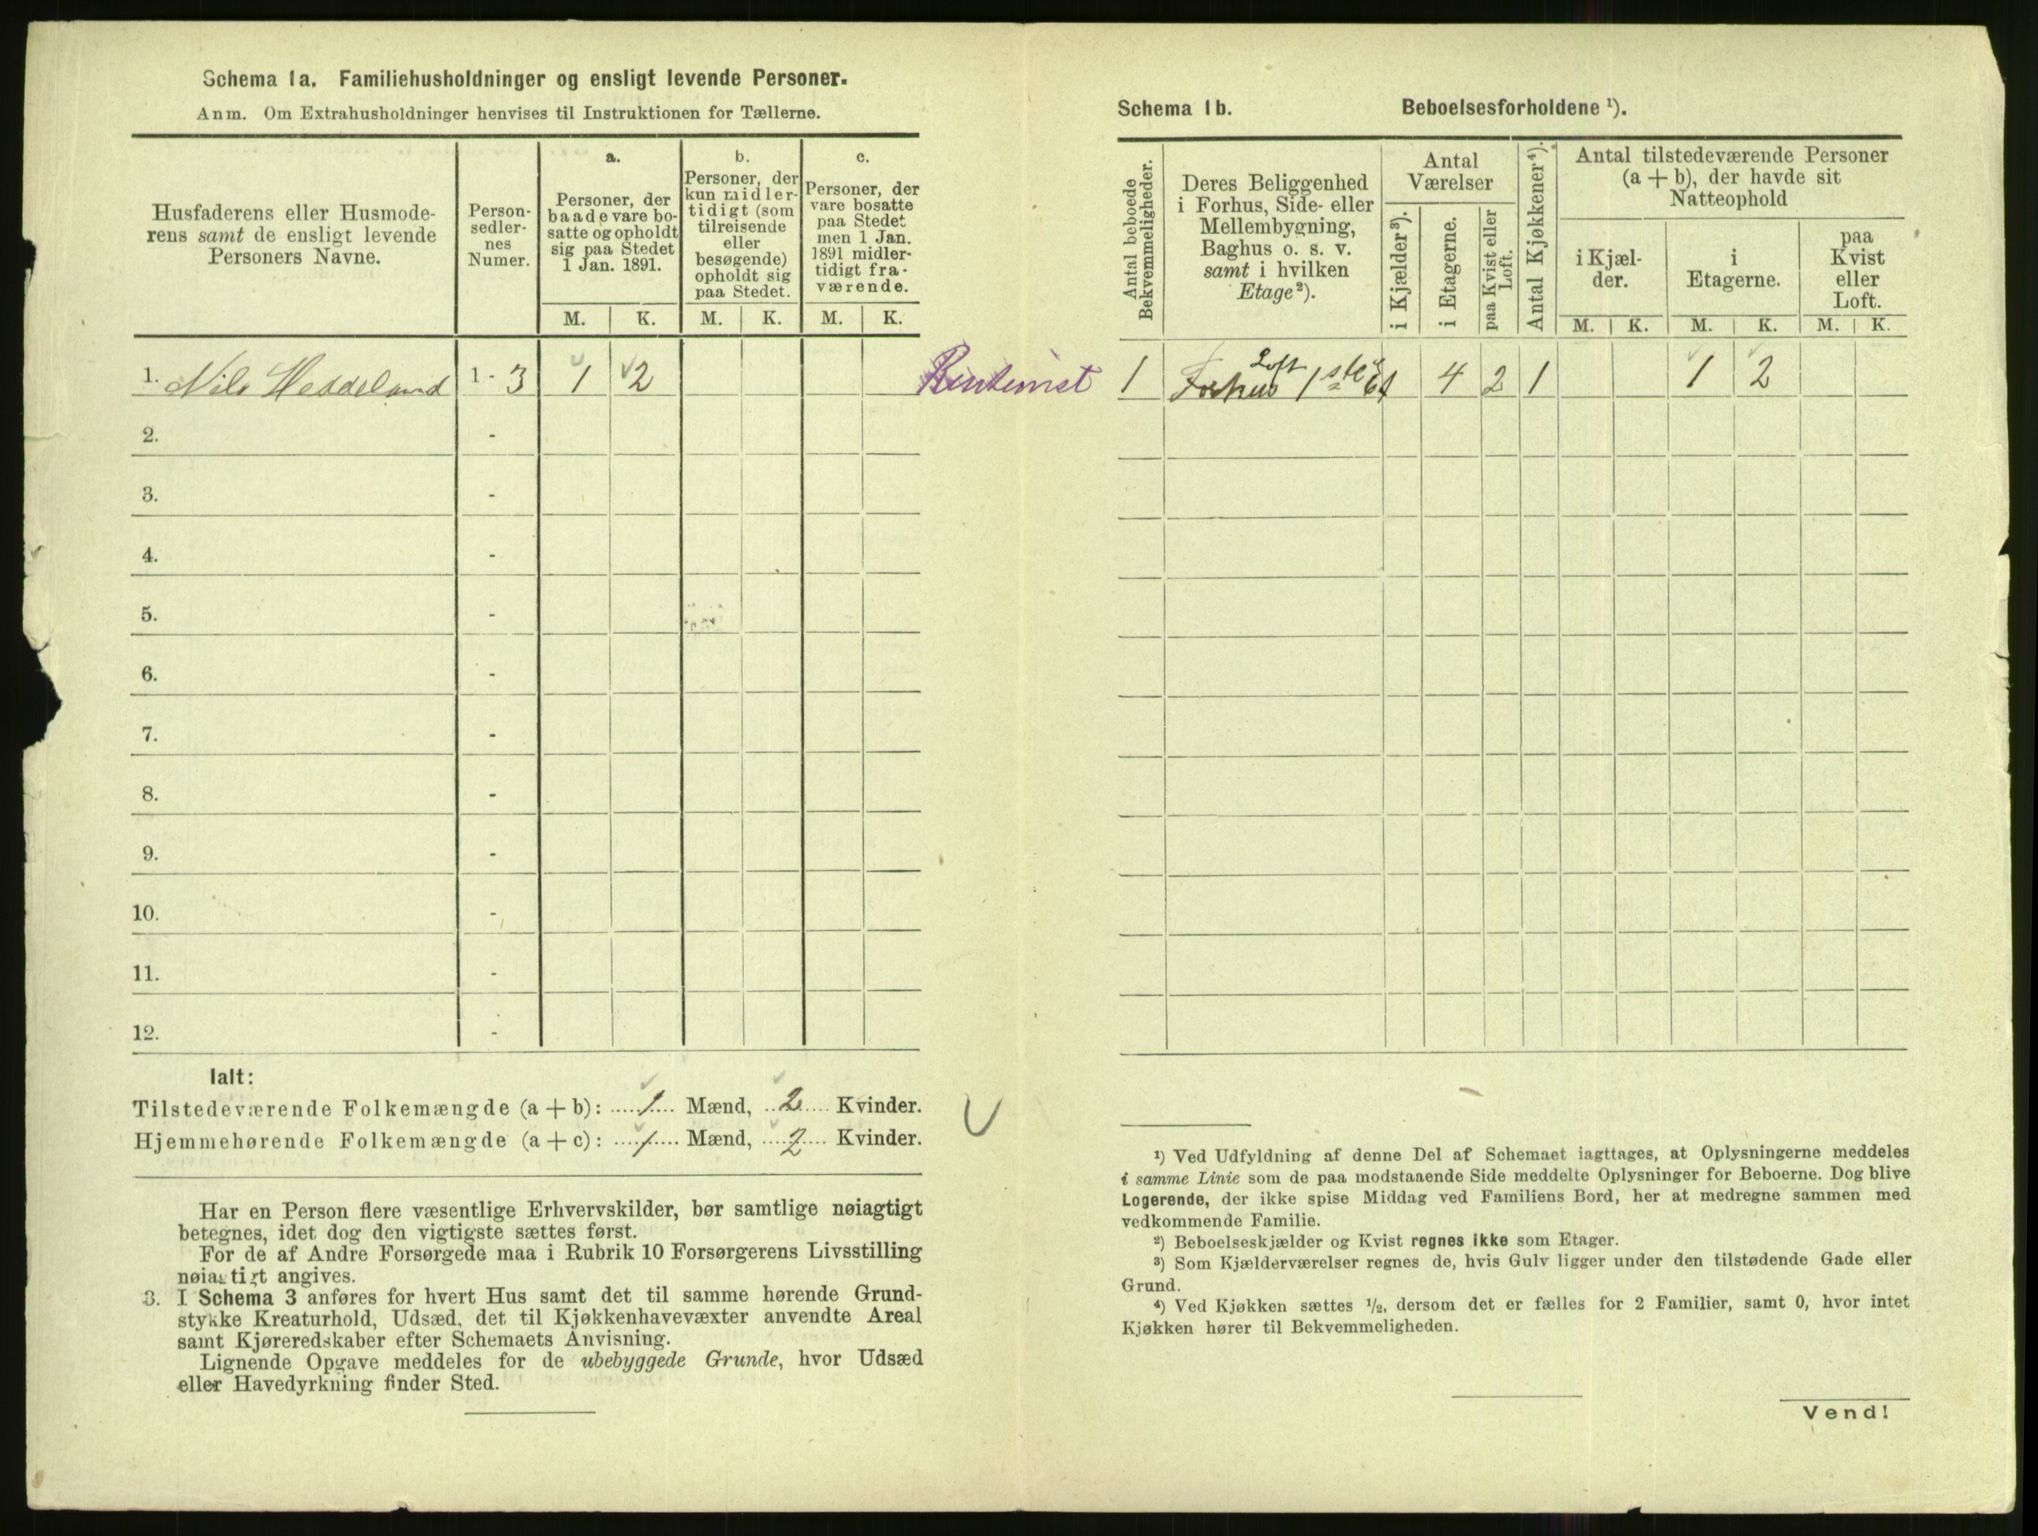 Schema 1a. Familiehusholdninger og ensligt levende Personer.
Anm. Om Extrahusholdninger henvises til Instruktionen for Tællerne.
Husfaderens eller Husmode-
rens samt de ensligt levende
Personers Navne.
Person-
sedler-
nes
Numer.
a.
Personer, der
baade vare bo-
satte og opholdt
sig paa Stedet
1 Jan. 1891.
b.
Personer, der
kun midler-
tidigt (som
tilreisende
eller
besøgende)
opholdt sig
paa Stedet.
c.
Personer, der
vare bosatte
paa Stedet
men 1 Jan.
1891 midler-
tidigt fra-
værende.
M. K. M. K. M. K.
1. Nils Heddeland 1 - 3 1 2 Rentenist
2. -
3. -
4. -
5. -
6. -
7. -
8. -
9. -
10. -
11. -
12. -
Ialt:
Tilstedeværende Folkemængde (a + b): 1 Mænd, 2 Kvinder.
Hjemmehørende Folkemængde (a + c): 1 Mænd, 2 Kvinder.
Har en Person flere væsentlige Erhvervskilder, bør samtlige nøiagtigt
betegnes, idet dog den vigtigste sættes først.
For de af Andre Forsørgede maa i Rubrik 10 Forsørgerens Livsstilling
nøiagtigt angives.
3. I Schema 3 anføres for hvert Hus samt det til samme hørende Grund-
stykke Kreaturhold, Udsæd, det til Kjøkkenhavevæxter anvendte Areal
samt Kjøreredskaber efter Schemaets Anvisning.
Lignende Opgave meddeles for de ubebyggede Grunde, hvor Udsæd
eller Havedyrkning finder Sted.
Schema 1b. Beboelsesforholdene ¹).
Antal beboede
Bekvemmeligheder.
Deres Beliggenhed
i Forhus, Side- eller
Mellembygning,
Baghus o. s. v.
samt i hvilken
Etage²).
Antal
Værelser
i Kjælder³).
i Etagerne.
paa Kvist eller
Loft.
Antal Kjøkkener⁴).
Antal tilstedeværende Personer
(a + b), der havde sit
Natteophold
i Kjæl-
der.
i
Etagerne.
paa
Kvist
eller
Loft.
M. K. M. K. M. K.
Loft
1 Forhus 1ste Et 4 2 1 1 2
¹) Ved Udfyldning af denne Del af Schemaet iagttages, at Oplysningerne meddeles
i samme Linie som de paa modstaaende Side meddelte Oplysninger for Beboerne. Dog blive
Logerende, der ikke spise Middag ved Familiens Bord, her at medregne sammen med
vedkommende Familie.
²) Beboelseskjælder og Kvist regnes ikke som Etager.
³) Som Kjælderværelser regnes de, hvis Gulv ligger under den tilstødende Gade eller
Grund.
⁴) Ved Kjøkken sættes ½, dersom det er fælles for 2 Familier, samt 0, hvor intet
Kjøkken hører til Bekvemmeligheden.
Vend!